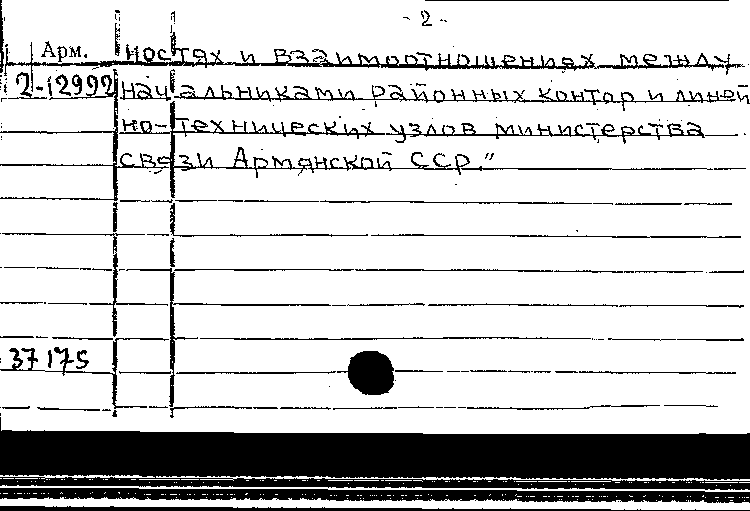 - 2 -
Арм. ностях и взаимоотношениях между
2-12992 начальниками районных контор и линей
но-технических узлов министерства
связи Армянской ССР."
37175